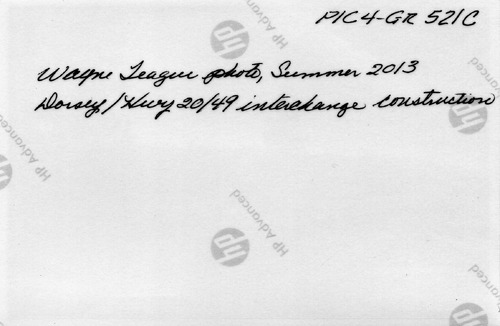 PIC4-GR 521C
Wayne League photo, Summer 2013
Dorsey/Hwy 20/49 interchange construction
HP Advanced
hp
HP Advanced
hp
HP Advanced
hp
HP Advanced
hp
HP Advanced
hp
HP Advanced
hp